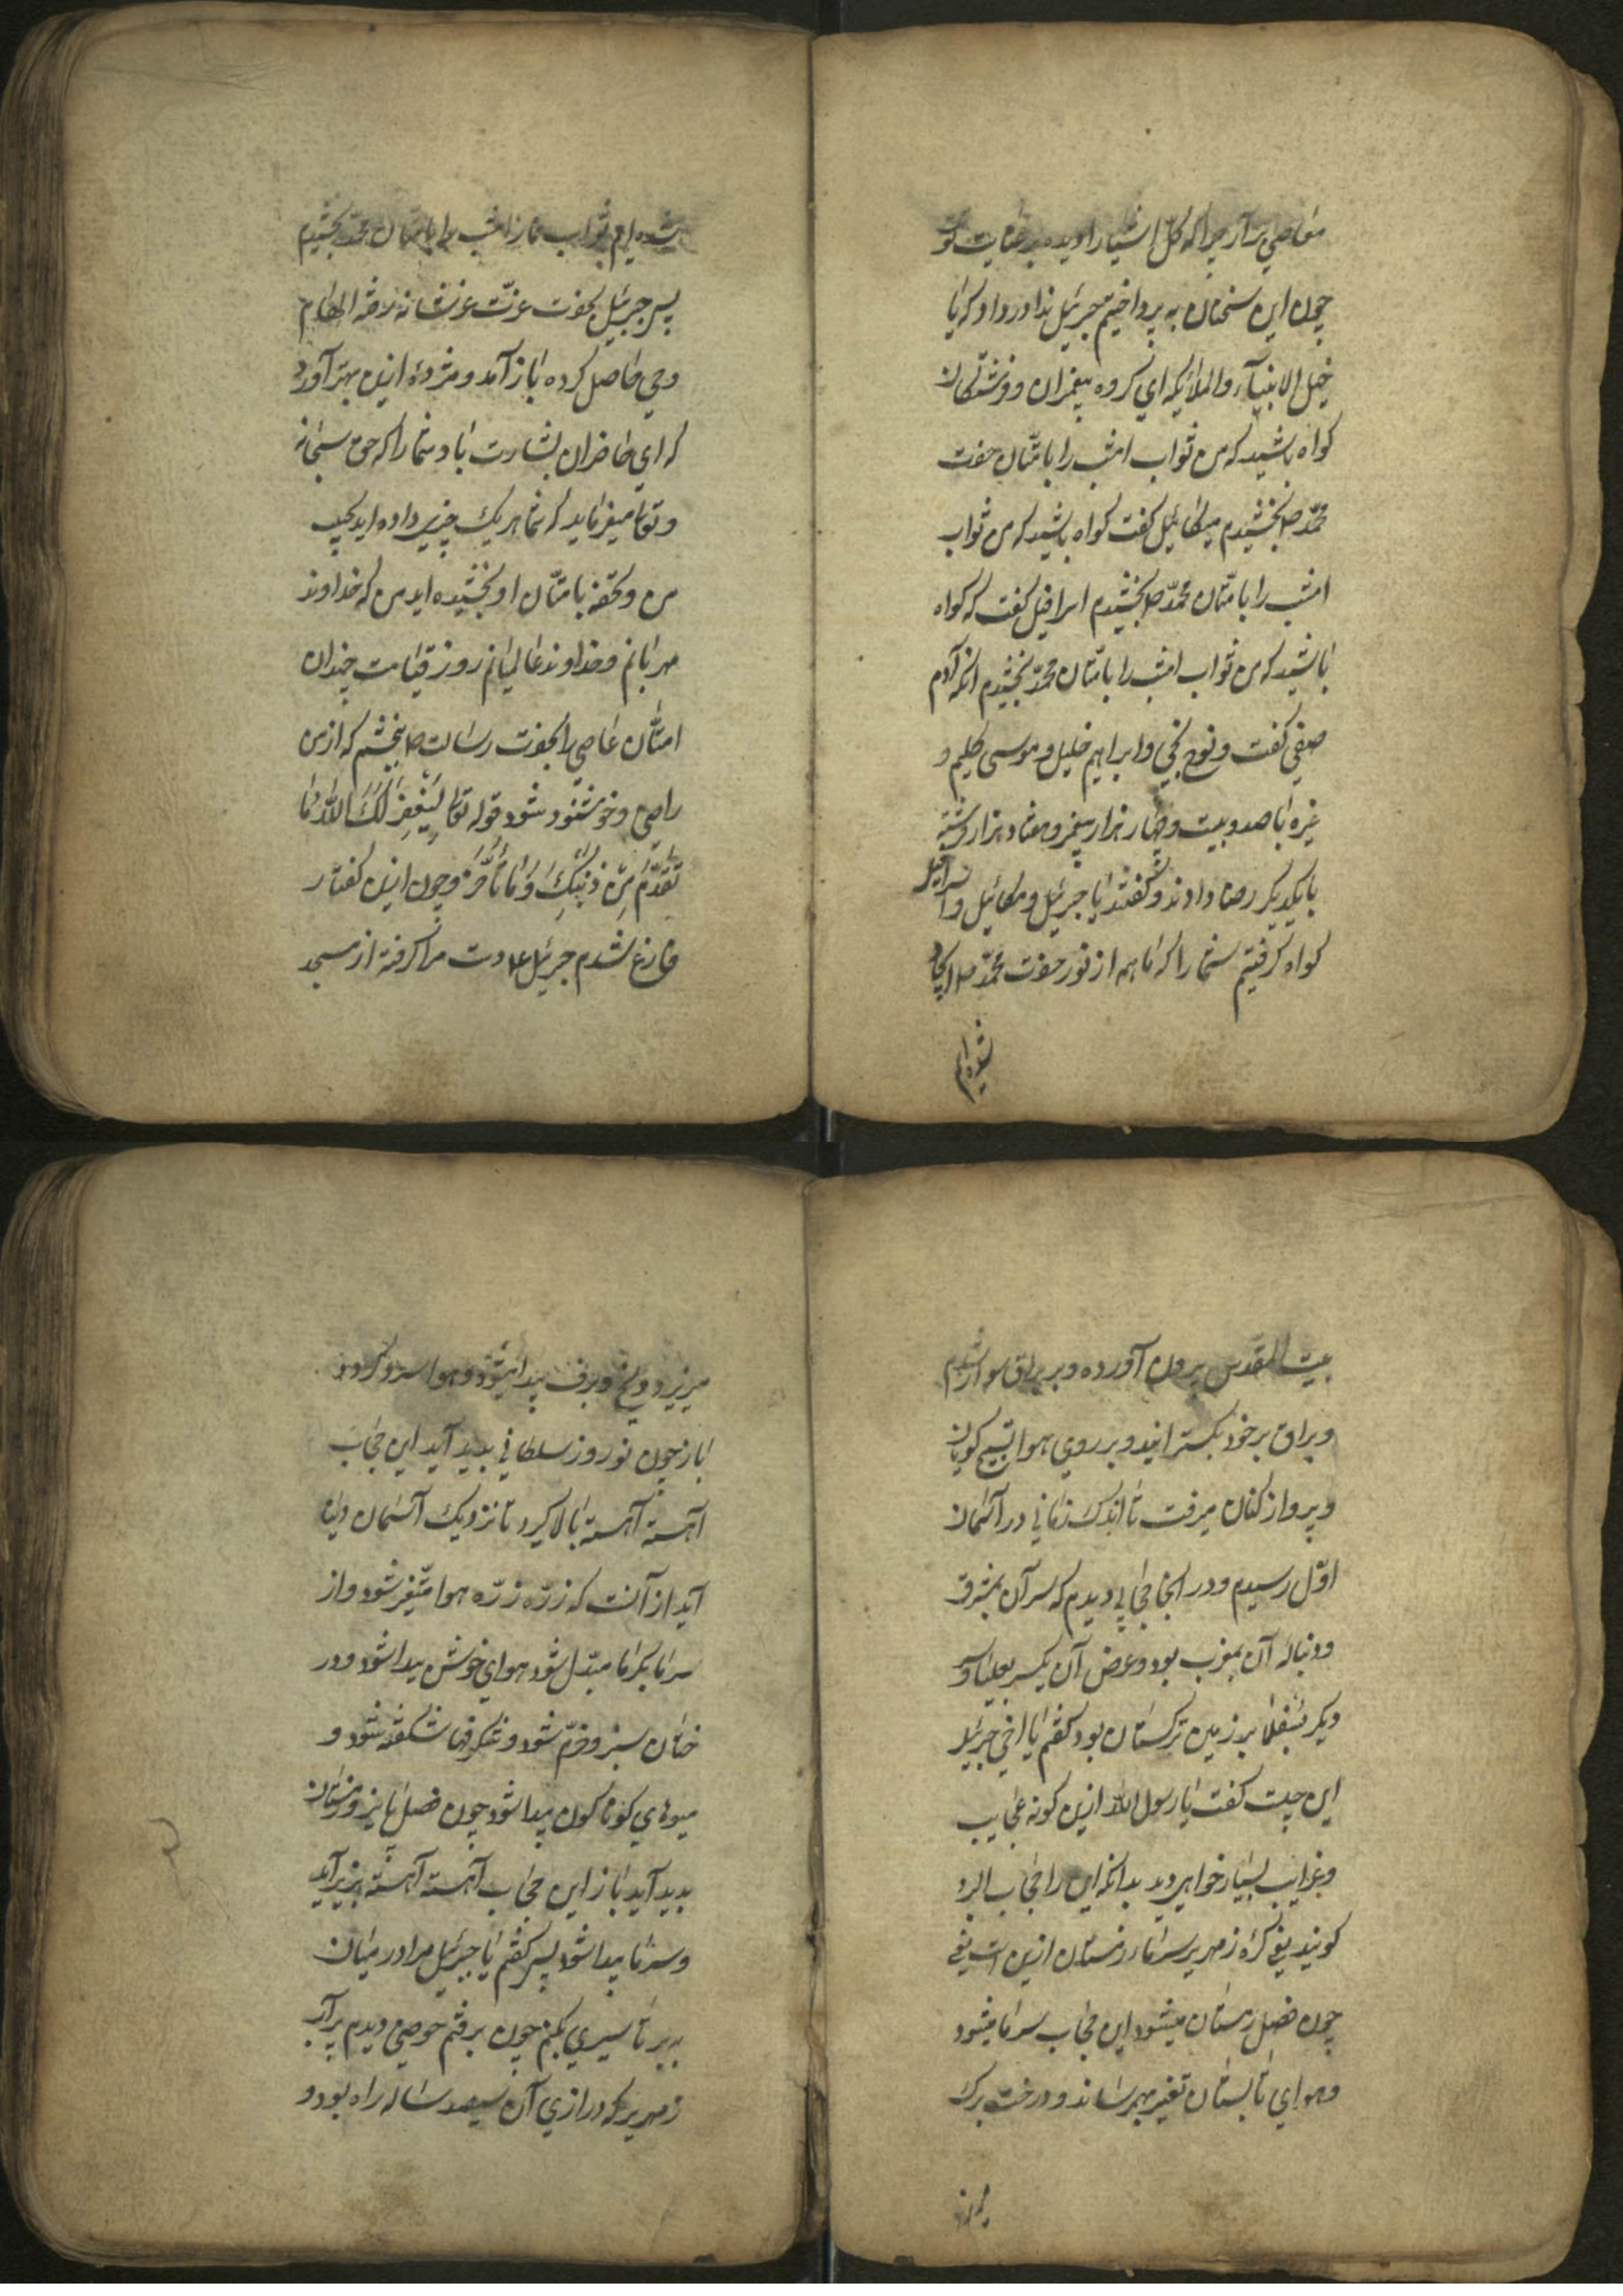 معاصي برآر چرا که کلّ اشیا را دیده بر عنایت تو
چون این سخنان به پرداختیم جبرئیل ندا در داد که یا
خیل الانبیآء والملائیکه اي کروه پیغمبران و فرشتکان
کواه باشید که من ثواب امشب را بامتّان حضرت
محمّد صلا بخشیدم میکائیل کفت کواه باشید که من ثواب
امشب را بامتّان محمّد صلا بخشیدم اسرافیل کفت که کواه
باشید که من ثواب امشب را بامتّان محمّد بخشیدم انکه آدم
صفي کفت و نوح نجي و ابراهیم خلیل و موسی کلیم و
غیره با صد و بیست و چهار هزار پیغمبر و هفتاد هزار فرشته
بایکدیکر رضا دادند و کفتند یا جبرئیل و میکائیل و اسرافیل
کواه کرفتیم شما را که ما همه از نور حضرت محمّد صلا ایجاد
شده ایم
شده ایم ثواب نماز امشب را بامتان محمّد بخشیدم
پس جبرئیل بحضرت عزّت عزشانه رفته الهام
وحي حاصل کرده باز آمد و مژدۀ ازین بهتر آورد
که اي حاضران بشارت باد شما را که حق سبحانه
و تعالی میفرماید که شما هر یک چیزي داده اید بحبیب
من و تحفه بامتّان او بخشیده اید من که خداوند
مهربانم و خداوند عالمیانم روز قیامت چندان
امتّان عاصي را بحضرت رسالت صلا ببخشم که از من
راضي و خوشنود شود قوله تعالی لِیَغْفِرَ لَكَ اللّٰهُ مَا
تَقَدَّمَ مِنْ ذَنْبِكَ وَمَا تَأَخَّرَ و چون ازین کفتار
فارغ شدم جبرئیل ع دست مرا کرفته از مسجد
بیت المقدس بیرون آورده و بر براق سوار شدم
و براق بر خود بکسترانید و بر روي هوا تسبیح کویان
و پرواز کنان میرفت تا اندک زماني در آسمان
اوّل رسیدم و در انجا حجابي دیدم که سر آن بمشرق
و دنبالۀ آن بمغرب بود و عرض آن یکسر بعلیا و سر
دیکر بسفلا بر زمین ترکستان بود کفتم یا اخي جبرئیل
این چیست کفت یا رسول اللّه ازین کونه عجایب
و غرایب بسیار خواهي دید بدانکه این را حجاب البرد
کویند یعني کرۀ زمهریر سرماء زمستان ازین است یعني
چون فصل زمستان میشود این حجاب سرما میشود
و هواي تابستان تغیر بهم رساند و درخت برک
میریزد
میریزد و یخ و برف پیدا میشود و هوا سرد کردد
باز چون نوروز سلطاني پدید آید این حجاب
آهسته آهسته بالا کیرد تا نزدیک آسمان دنیا
آید از آنست که زرّه زرّه هوا متّغیر شود و از
سرما بکرما مبدّل شود هواي خوش پیدا شود و در
ختان سبز و خرّم شود و شکوفها شکفته شود و
میوهاي کونا کون پیدا شود چون فصل پائیز و زمستان
پدید آید باز این حجاب آهسته آهسته بزیر آید
و سرما پیدا شود پس کفتم یا جبرئیل مرا در میان
به بر تا سیري بکنم چون برفتم حوضي دیدم پر آب
زمهریر که درازي آن سیصد ساله راه بود و